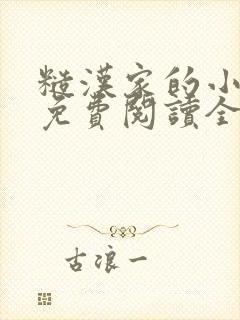 糙漢家的小
免費閱讀全
古浪一